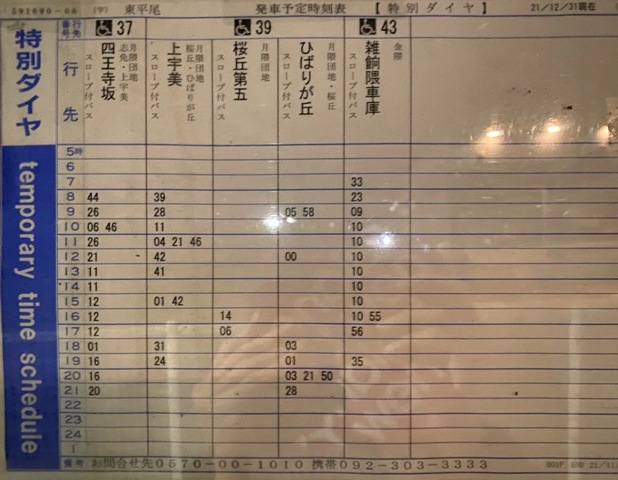 591690-06 (下) 東平尾 発車予定時刻表 【特別ダイヤ】 21/12/31現在
特別ダイヤ
temporary time schedule
番号 行先 37 39 43
行先
四王寺坂 志免・上宇美 月隈団地 スロープ付バス
上宇美 月隈団地 桜丘・ひばりが丘 スロープ付バス
桜丘第五 月隈団地
ひばりが丘 月隈団地・桜丘 スロープ付バス
雑餉隈車庫 金隈 スロープ付バス
5時
6
7 33
8 44 39 23
9 26 28 05 58 09
10 06 46 11 10
11 26 04 21 46 10
12 21 42 00 10
13 11 41 10
14 11 10
15 12 01 42 10
16 12 14 10 55
17 12 06 56
18 01 31 03
19 16 24 01 35
20 16 03 21 50
21 20 28
22
23
24
1
備考 お問合せ先0570-00-1010 携帯092-303-3333